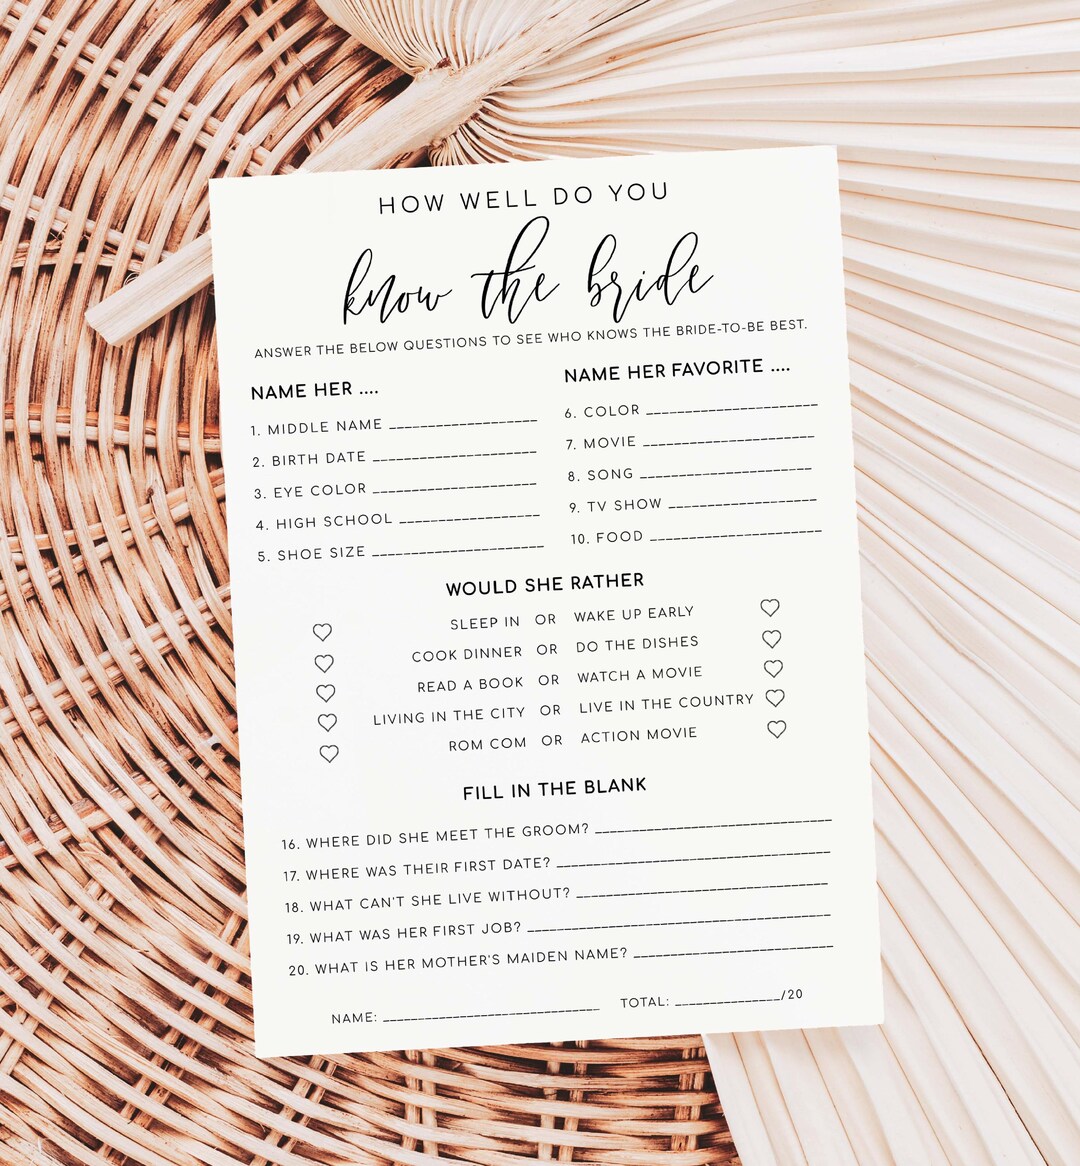 HOW WELL DO YOU
know the bride
ANSWER THE BELOW QUESTIONS TO SEE WHO KNOWS THE BRIDE-TO-BE BEST.
NAME HER ....
1. MIDDLE NAME ___________________
2. BIRTH DATE _____________________
3. EYE COLOR _____________________
4. HIGH SCHOOL __________________
5. SHOE SIZE ______________________
NAME HER FAVORITE ....
6. COLOR ______________________
7. MOVIE ______________________
8. SONG ______________________
9. TV SHOW ___________________
10. FOOD ______________________
WOULD SHE RATHER
SLEEP IN OR WAKE UP EARLY
COOK DINNER OR DO THE DISHES
READ A BOOK OR WATCH A MOVIE
LIVING IN THE CITY OR LIVE IN THE COUNTRY
ROM COM OR ACTION MOVIE
FILL IN THE BLANK
16. WHERE DID SHE MEET THE GROOM? ______________________________
17. WHERE WAS THEIR FIRST DATE? ___________________________________
18. WHAT CAN'T SHE LIVE WITHOUT? ________________________________
19. WHAT WAS HER FIRST JOB? _______________________________________
20. WHAT IS HER MOTHER'S MAIDEN NAME? __________________________
NAME: ____________________________ TOTAL: ______________/20